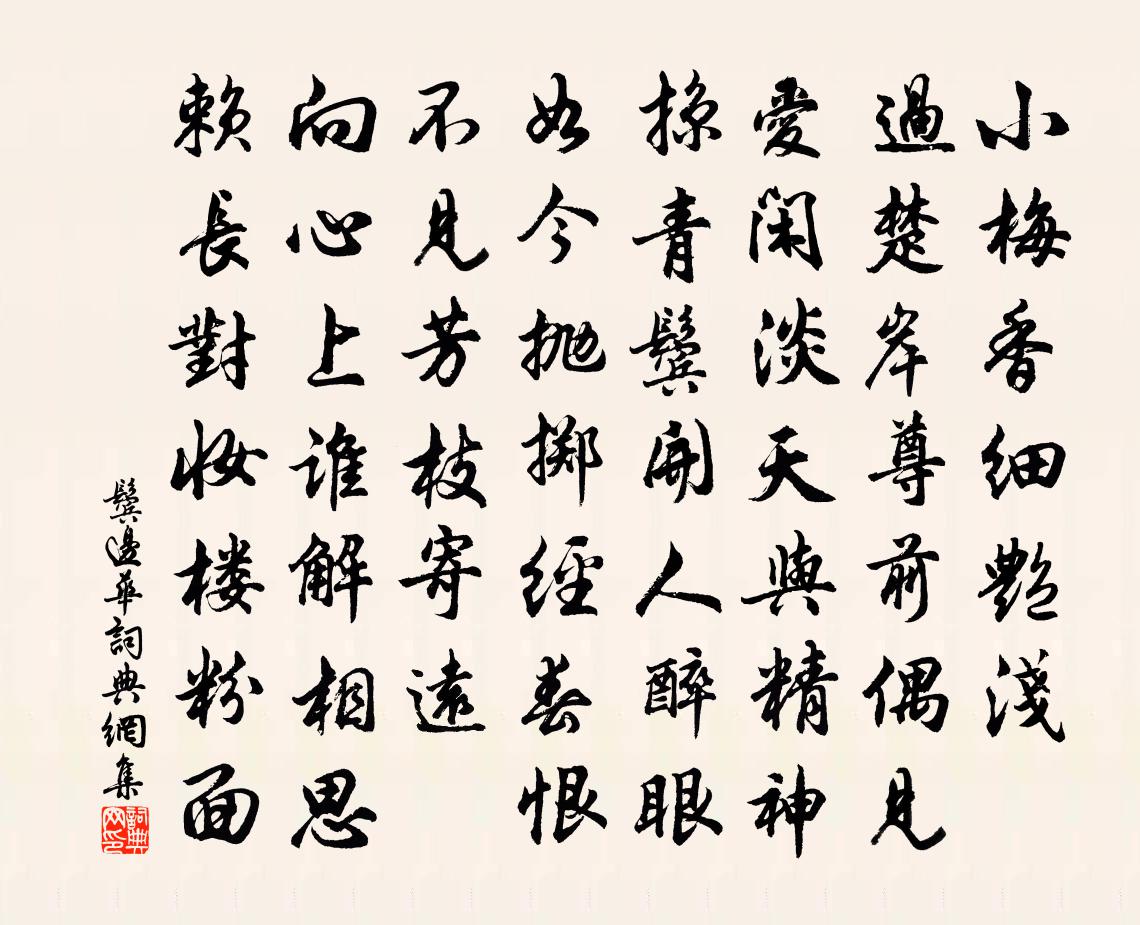 小梅香細艷淺
過楚岸尊前偶見
愛閑淡天與精神
掠青鬢開人醉眼
如今拋擲經春恨
不見芳枝寄遠
向心上誰解相思
賴長對妝樓粉面
鬢邊華詞典網集
詞典網印